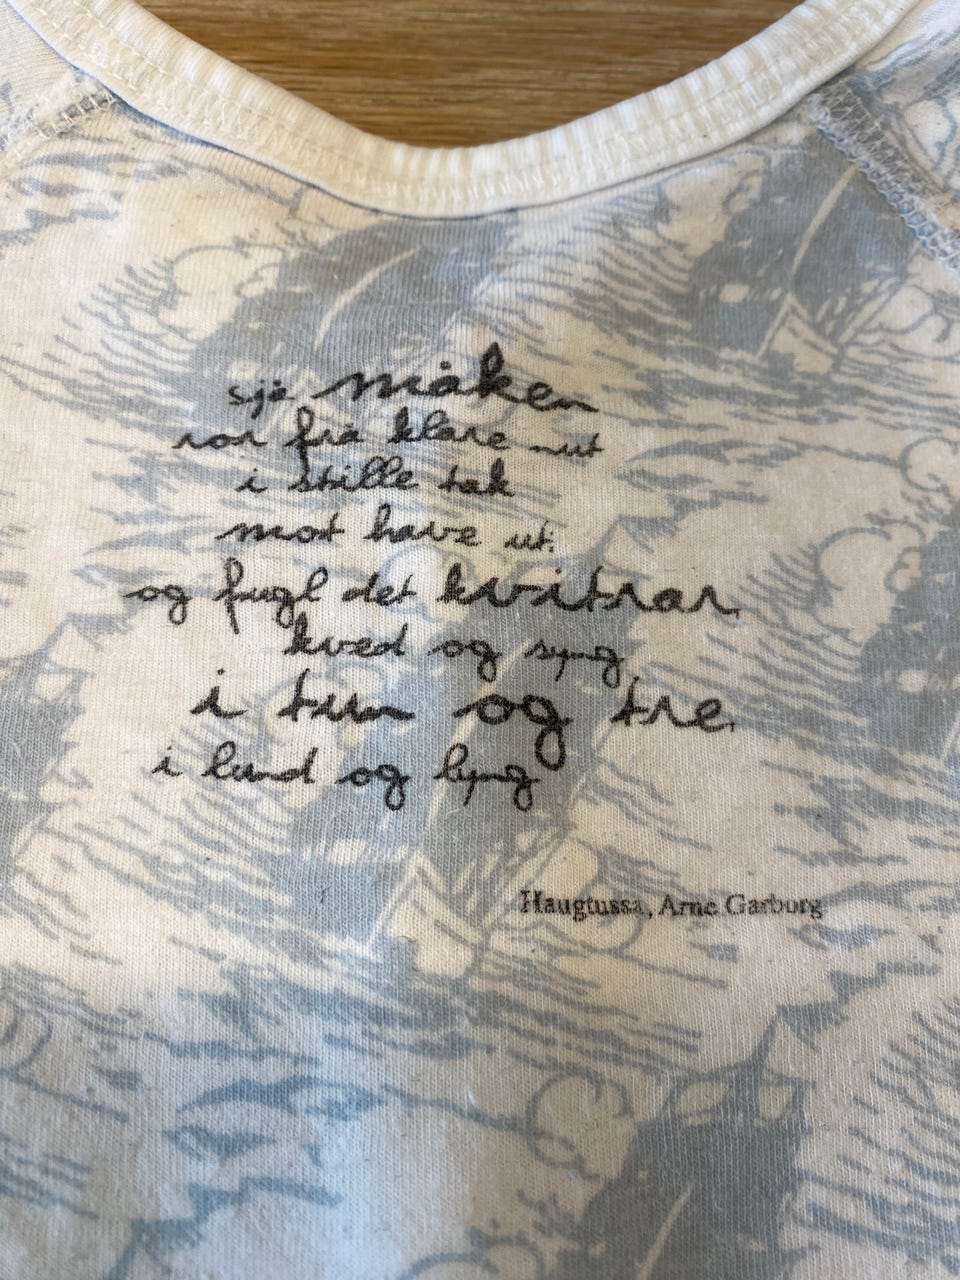 sjå måken
ror frå klåre nut
i stille tak
mot have ut.
og fugl det kvitrar
kved og syng
i tun og tre
i lund og lyng
Haugtussa, Arne Garborg